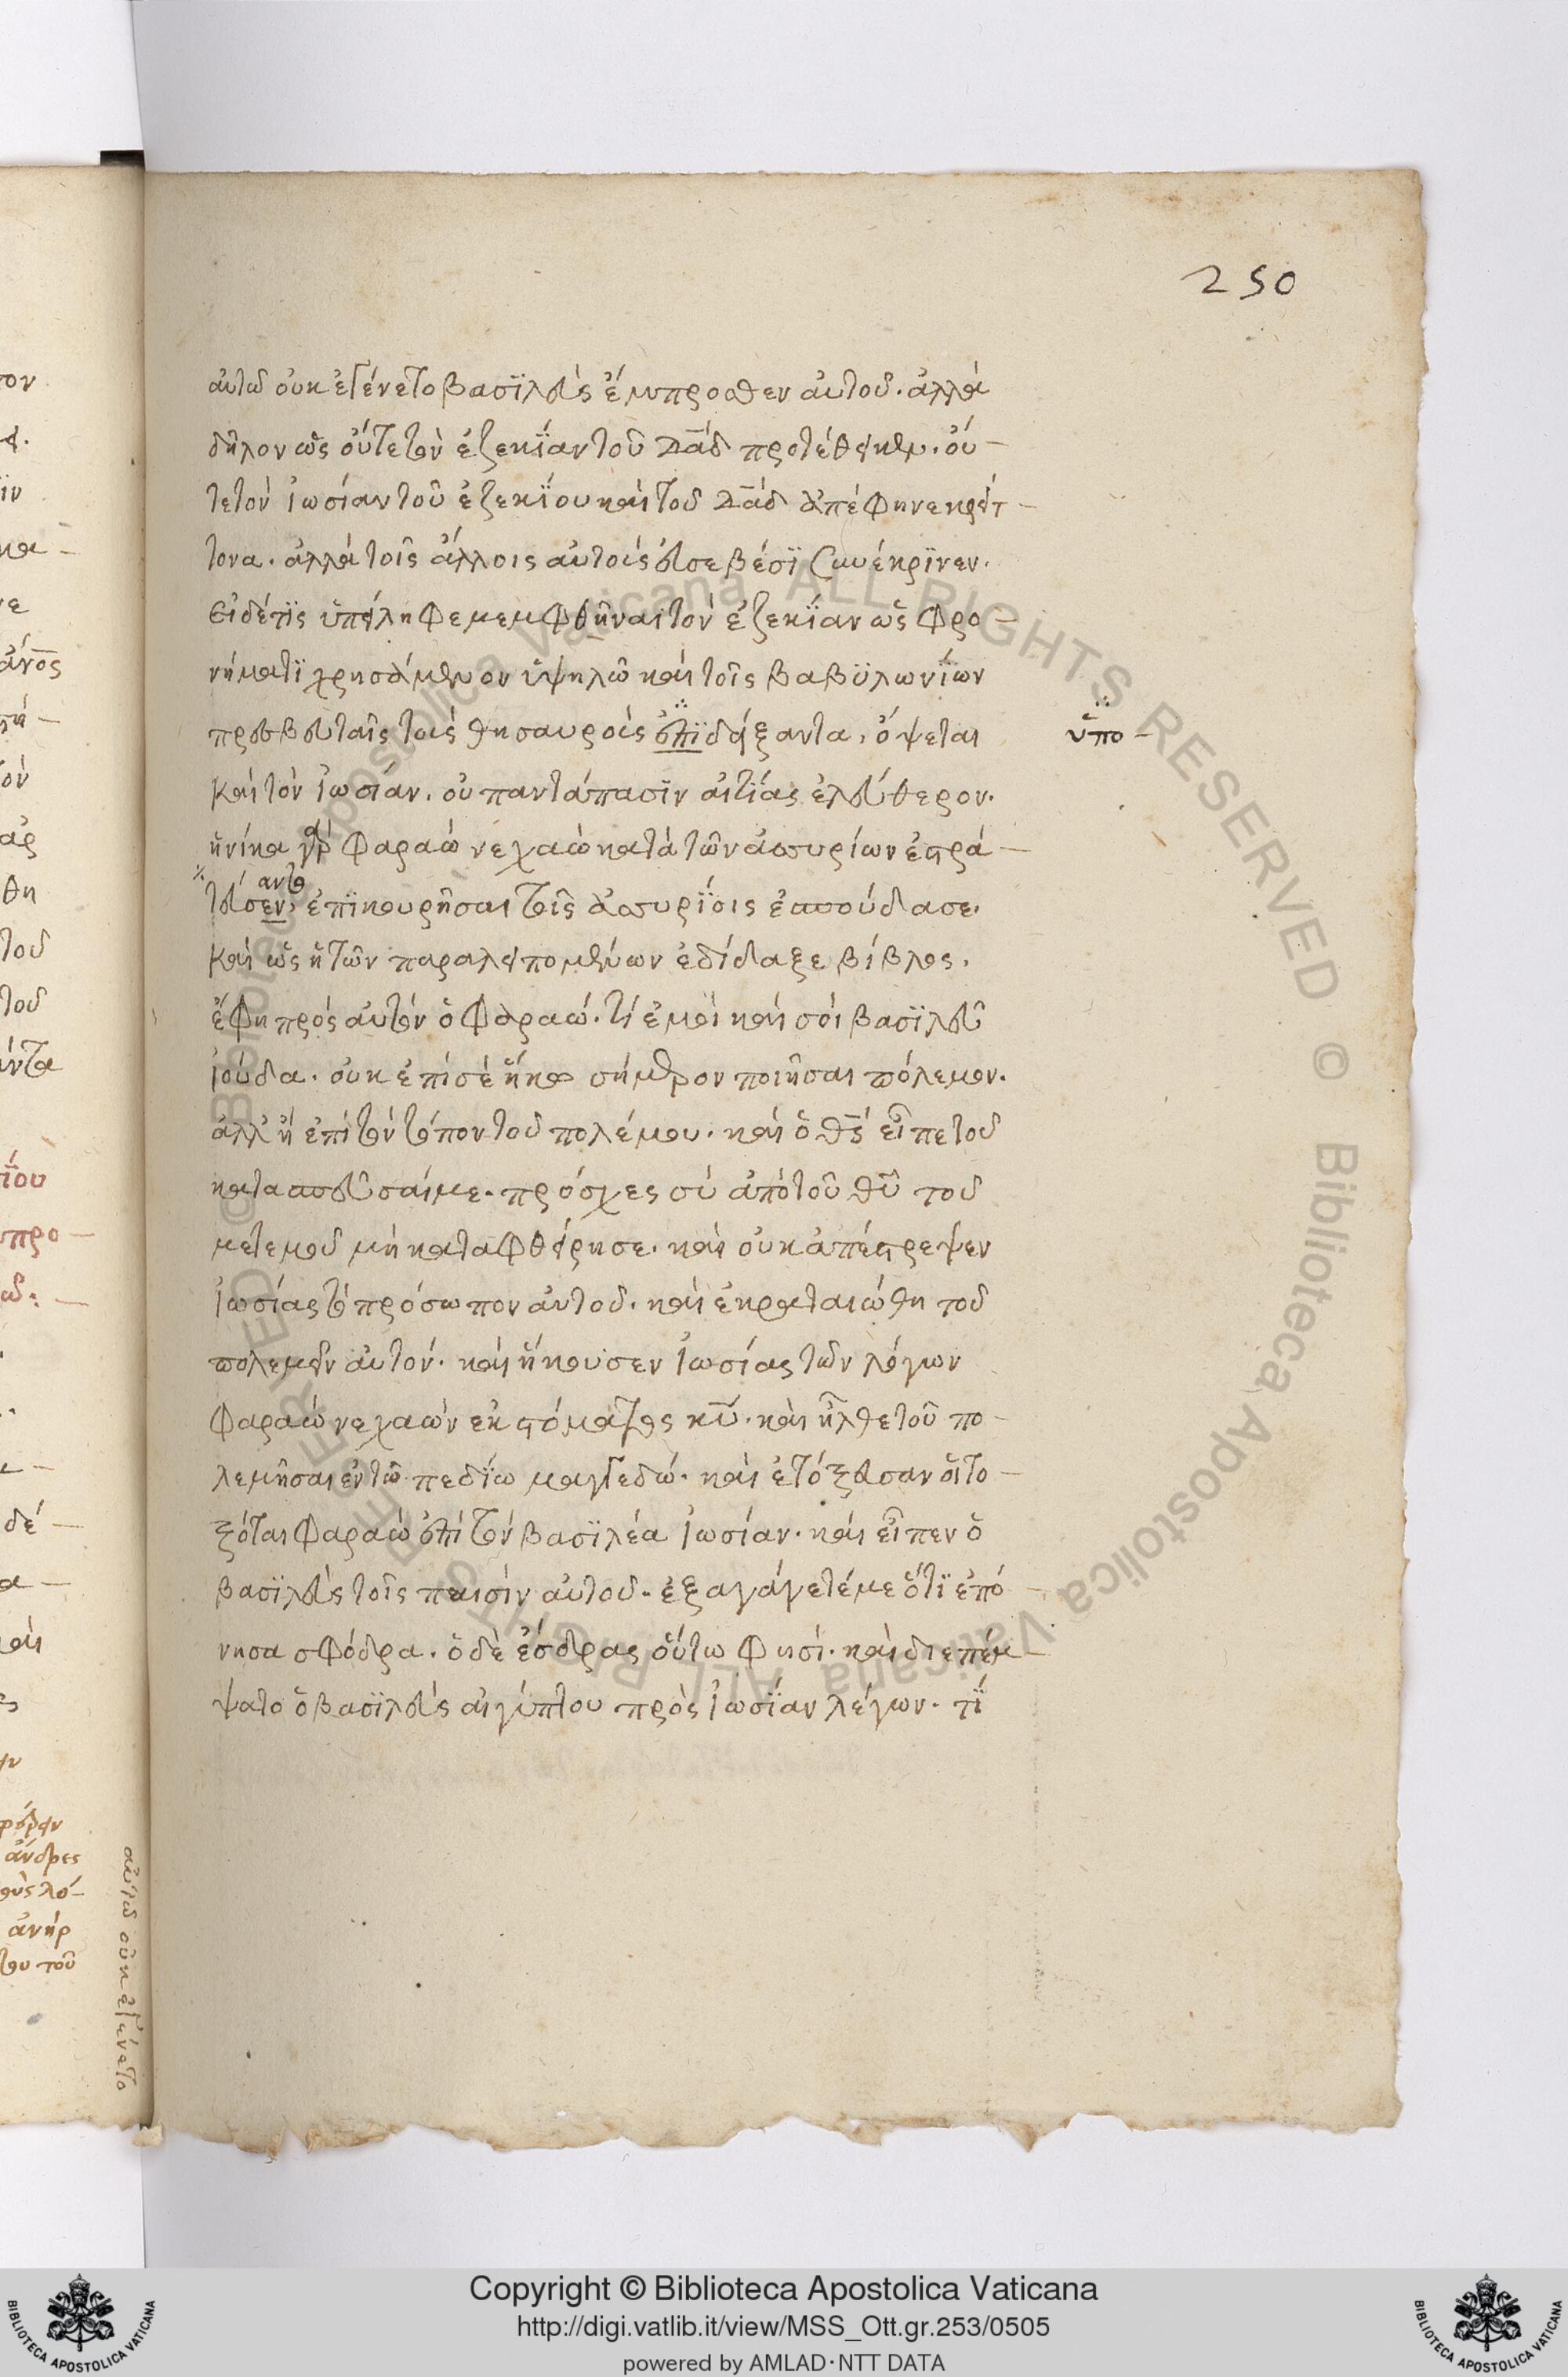 250
αὐτῶ οὐκ ἐγένετο βασϊλεὺς ἔμπροσθεν αὐτοῦ. ἀλλὰ
δῆλον ὡς οὔτε τὸν ἐζεκΐαν τοῦ δα̅δ προτέθεικεν. οὔ-
τε τὸν ἰωσίαν τοῦ ἐζεκΐου καὶ τοῦ δα̅δ ἀπέφηνε κρείτ-
τονα. ἀλλὰ τοῖς ἄλλοις αὐτοὺς εὐσεβέσϊ συνέκρϊνεν.
εἰ δέ τϊς ὑπείληφε μεμφθῆναι τὸν ἐζεκΐαν ὡς φρο-
νήματϊ χρησάμενον ὑψηλῶ καὶ τοῖς βαβϋλωνΐων
πρεσβευταῖς τοὺς θησαυροὺς ἐπϊδείξαντα, ὄψεται
ὑπο-
καὶ τὸν ἰωσίαν. οὐ παντάπασϊν αἰτίας ἐλεύθερον.
ἡνίκα γὰρ φαραὼ νεχαὼ κατὰ τῶν ἀσσυρίων ἐστρά-
αντο
τευσεν, ἐπϊκουρῆσαι τοῖς ἀσσυρΐοις ἐσπούδασε.
καὶ ὡς ἡ τῶν παραλειπομένων ἐδίδαξε βίβλος,
ἔφη πρὸς αὐτὸν ὁ φαραώ. τί ἐμοὶ καὶ σοὶ βασϊλεῦ
ἰούδα. οὐκ ἐπί σὲ ἥκω σήμερον ποιῆσαι πόλεμον.
ἀλλ' ἢ ἐπὶ τὸν τόπον τοῦ πολέμου. καὶ ὁ θς̅ εἶπε τοῦ
κατασπεῦσαί με. πρόσχες σὺ ἀπὸ τοῦ θυ̅ τοῦ
μετεμοῦ μὴ καταφθείρη σε. καὶ οὐκ ἀπέστρεψεν
ἰωσίας τὸ πρόσωπον αὐτοῦ. καὶ ἐκραταιώθη τοῦ
πολεμεῖν αὐτόν. καὶ ἤκουσεν ἰωσίας τῶν λόγων
φαραὼ νεχαὼν ἐκ στόματος κυ̅. καὶ ἦλθε τοῦ πο-
λεμῆσαι ἐν τῶ πεδΐω μαγγεδώ. καὶ ἐτόξευσαν οἱ το-
ξόται φαραὼ ἐπὶ τὸν βασϊλέα ἰωσίαν. καὶ εἶπεν ὁ
βασϊλεὺς τοῖς παισὶν αὐτοῦ. ἐξαγάγετέ με ὅτϊ ἐπό-
νησα σφόδρα. ὁ δὲ ἔσδρας οὕτω φησί. καὶ διεπέμ-
ψατο ὁ βασϊλεὺς αἰγύπτου πρὸς ἰωσΐαν λέγων. τΐ
αὐτῶ οὐκ ἐγένετο
Copyright © Biblioteca Apostolica Vaticana
http://digi.vatlib.it/view/MSS_Ott.gr.253/0505
powered by AMLAD·NTT DATA